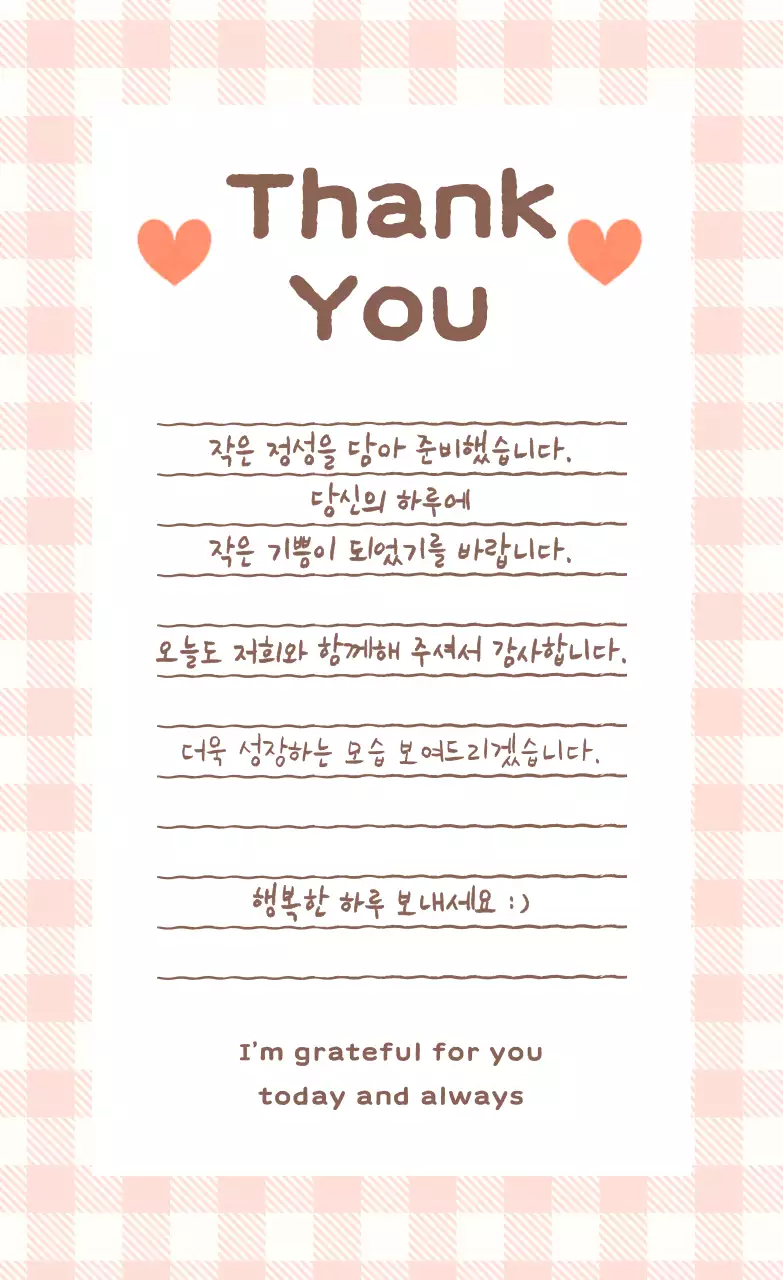 Thank
You
작은 정성을 담아 준비했습니다.
당신의 하루에
작은 기쁨이 되었기를 바랍니다.
오늘도 저희와 함께해 주셔서 감사합니다.
더욱 성장하는 모습 보여드리겠습니다.
행복한 하루 보내세요 :)
I'm grateful for you
today and always